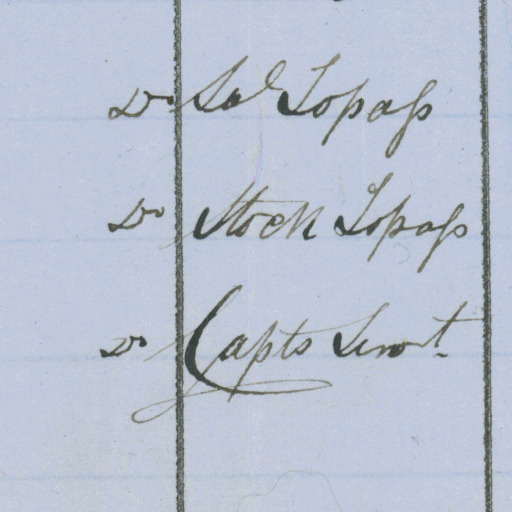 Do Sal Topass
Do Stock Topass
Do Capts Servt